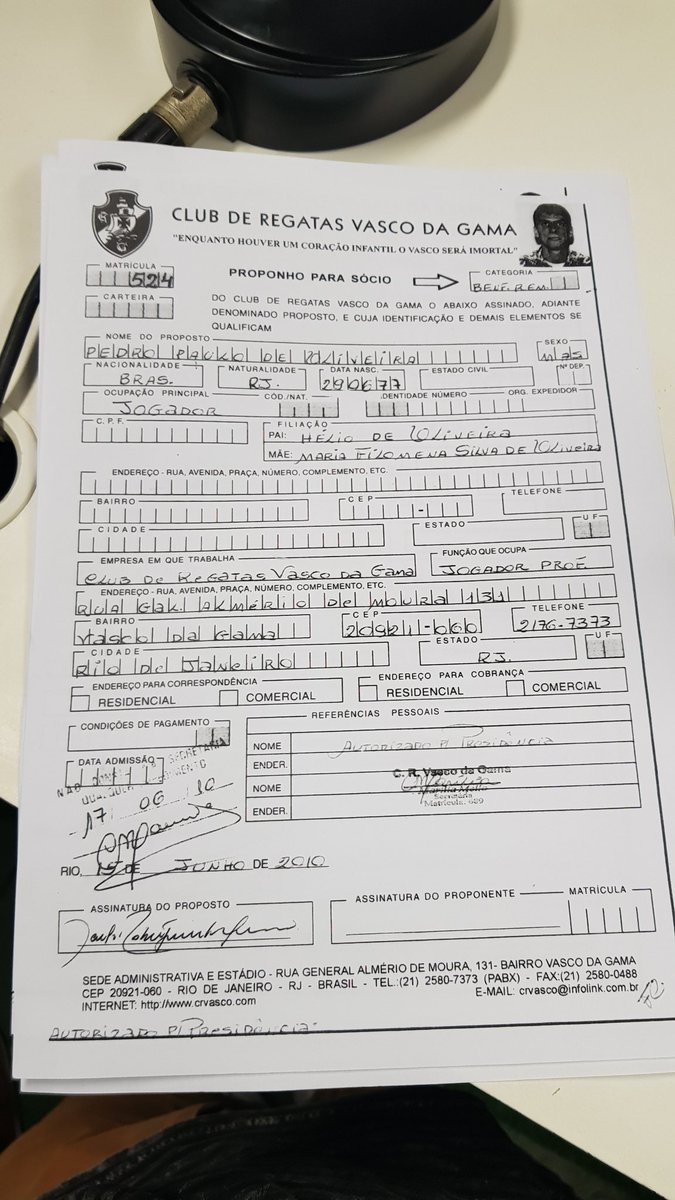 CLUB DE REGATAS VASCO DA GAMA
"ENQUANTO HOUVER UM CORAÇÃO INFANTIL O VASCO SERÁ IMORTAL"
MATRÍCULA
524
PROPONHO PARA SÓCIO
CATEGORIA
BENEF. REM.
CARTEIRA
DO CLUB DE REGATAS VASCO DA GAMA O ABAIXO ASSINADO, ADIANTE
DENOMINADO PROPOSTO, E CUJA IDENTIFICAÇÃO E DEMAIS ELEMENTOS SE
QUALIFICAM
NOME DO PROPOSTO
SEXO
PEDRO PAULO DE OLIVEIRA
MAS
NACIONALIDADE NATURALIDADE DATA NASC. ESTADO CIVIL Nº DEP.
BRAS. RJ. 290677
OCUPAÇÃO PRINCIPAL CÓD./NAT. IDENTIDADE NÚMERO ORG. EXPEDIDOR
JOGADOR
C.P.F. FILIAÇÃO
PAI: HÉLIO DE OLIVEIRA
MÃE: MARIA FILOMENA SILVA DE OLIVEIRA
ENDEREÇO - RUA, AVENIDA, PRAÇA, NÚMERO, COMPLEMENTO, ETC.
BAIRRO CEP TELEFONE
-
CIDADE ESTADO UF
EMPRESA EM QUE TRABALHA FUNÇÃO QUE OCUPA
CLUB DE REGATAS VASCO DA GAMA JOGADOR PROF.
ENDEREÇO - RUA, AVENIDA, PRAÇA, NÚMERO, COMPLEMENTO, ETC.
RUA GAL. ALMÉRIO DE MOURA 131
BAIRRO CEP TELEFONE
VASCO DA GAMA 20921-060 2176-7373
CIDADE ESTADO UF
RIO DE JANEIRO RJ.
ENDEREÇO PARA CORRESPONDÊNCIA ENDEREÇO PARA COBRANÇA
RESIDENCIAL COMERCIAL RESIDENCIAL COMERCIAL
CONDIÇÕES DE PAGAMENTO REFERÊNCIAS PESSOAIS
NOME AUTORIZADO P/ PRESIDÊNCIA
DATA ADMISSÃO
SECRETARIA
ENDER.
C. R. Vasco da Gama
NOME
Secretária
Matrícula: 609
17 06 10
ENDER.
RIO, 15 DE JUNHO DE 2010
ASSINATURA DO PROPOSTO ASSINATURA DO PROPONENTE MATRÍCULA
SEDE ADMINISTRATIVA E ESTÁDIO - RUA GENERAL ALMÉRIO DE MOURA, 131- BAIRRO VASCO DA GAMA
CEP 20921-060 - RIO DE JANEIRO - RJ - BRASIL - TEL.:(21) 2580-7373 (PABX) - FAX:(21) 2580-0488
INTERNET: http://www.crvasco.com E-MAIL: crvasco@infolink.com.br
AUTORIZADO P/ PRESIDÊNCIA.